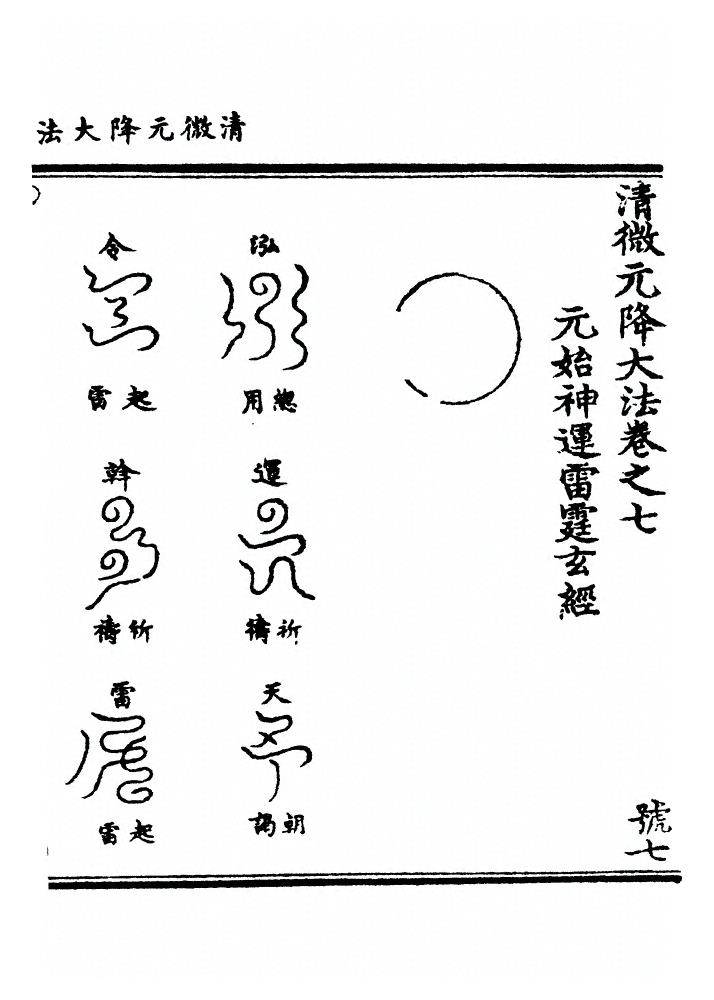 清微元降大法
清微元降大法卷之七
號七
元始神運雷霆玄經
泓
總用
運
祈禱
天
朝謁
令
起雷
幹
祈禱
雷
起雷